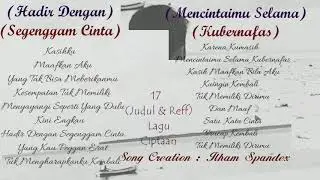 (Hadir Dengan)
(Segenggam Cinta)
Kasihku
Maafkan Aku
Yang Tak Bisa Meberikanmu
Kesempatan Tuk Memiliki
Menyayangi Seperti Yang Dulu
Kini Engkau
Hadir Dengan Segenggam Cinta
Yang Kau Teggan Erat
Tuk Mengharapkanku Kembali
17
(Judul & Reff)
Lagu
Ciptaan
(Mencintaimu Selama)
(Kubernafas)
Karena Kumasih
Mencintaimu Selama Kubernafas
Kasih Maafkan Bila Aku
Kuingin Kembali
Tuk Memiliki Dirimu
Dan Maaf
Satu Kata Cinta
Kembali
Tuk Memiliki Dirimu
Song Creation : Ilham Spandex